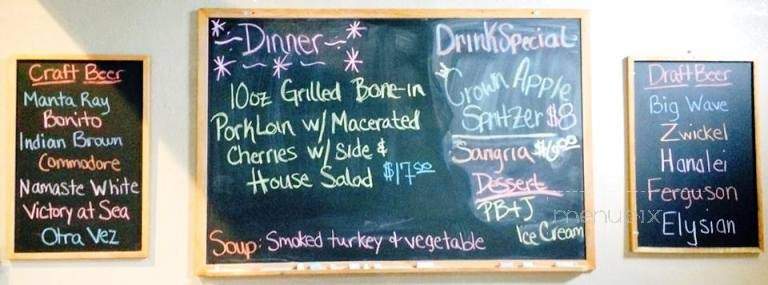 Craft Beer
Manta Ray
Bonito
Indian Brown
Commodore
Namaste White
Victory at Sea
Otra Vez
Dinner
10oz Grilled Bone-in
Pork Loin w/ Macerated
Cherries w/ Side &
House Salad $17.00
Soup: Smoked turkey & vegetable
Drink Special
Crown Apple
Spritzer $8
Sangria
Dessert
PB+J
Ice Cream
menupix
Draft Beer
Big Wave
Zwickel
Hanalei
Ferguson
Elysian